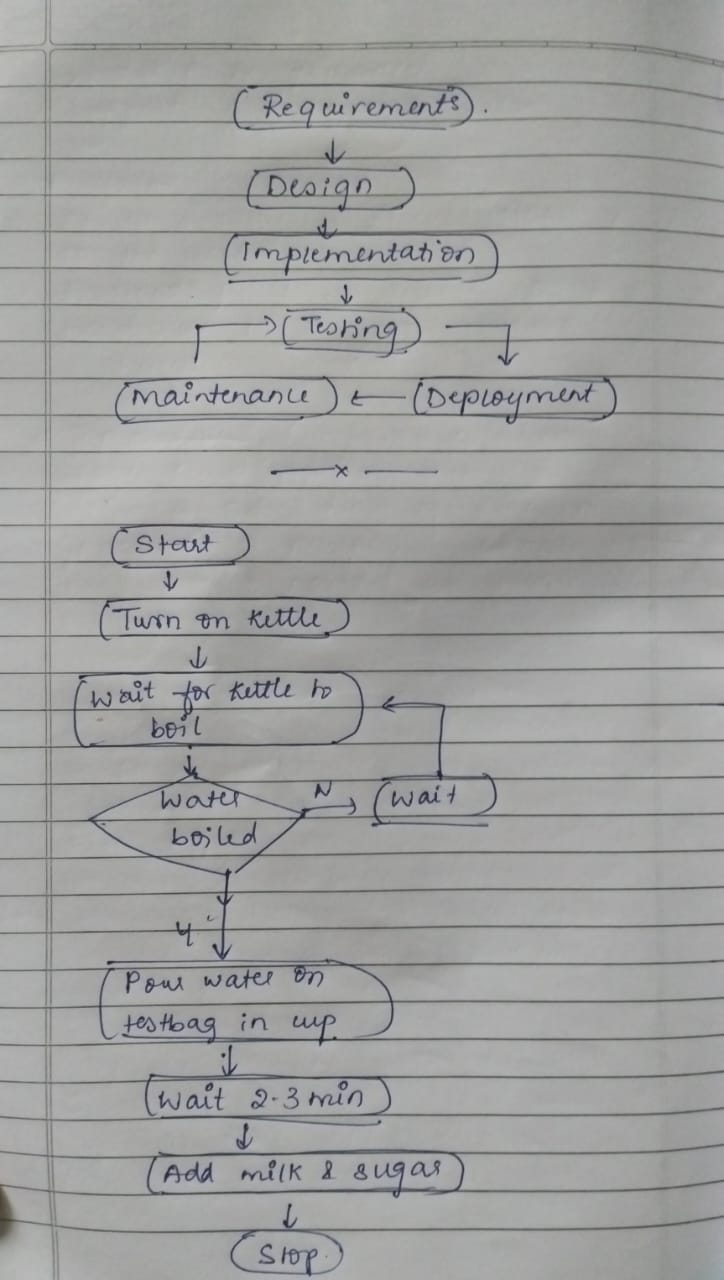 Requirements.
Design
Implementation
Testing
Maintenance
Deployment
x
Start
Turn on kettle
Wait for kettle to
boil
Water
boiled
N
Wait
Y
Pour water on
testbag in cup
Wait 2-3 min
Add milk & sugar
Stop.